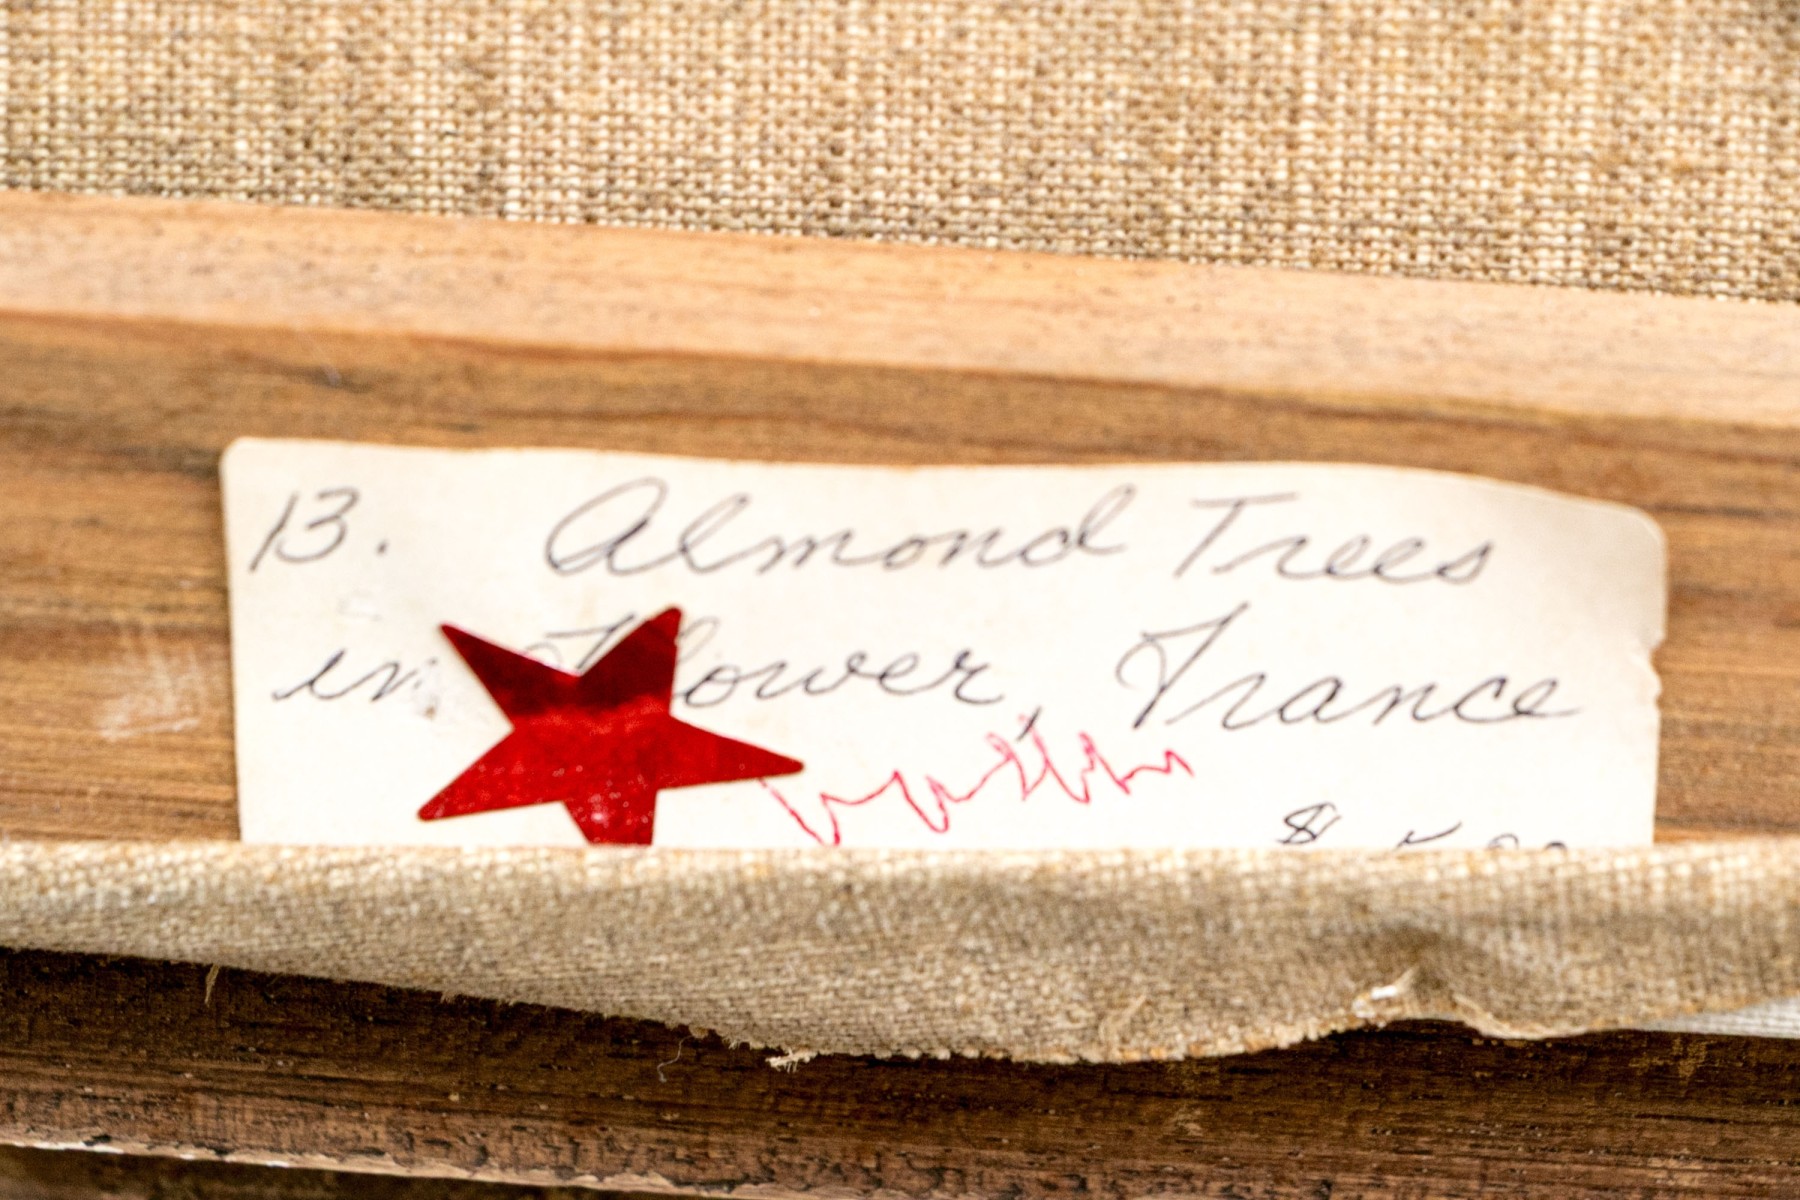 13. Almond Trees
in Flower, France
$